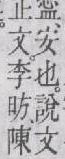 安也。說文
正文。李昉、陳